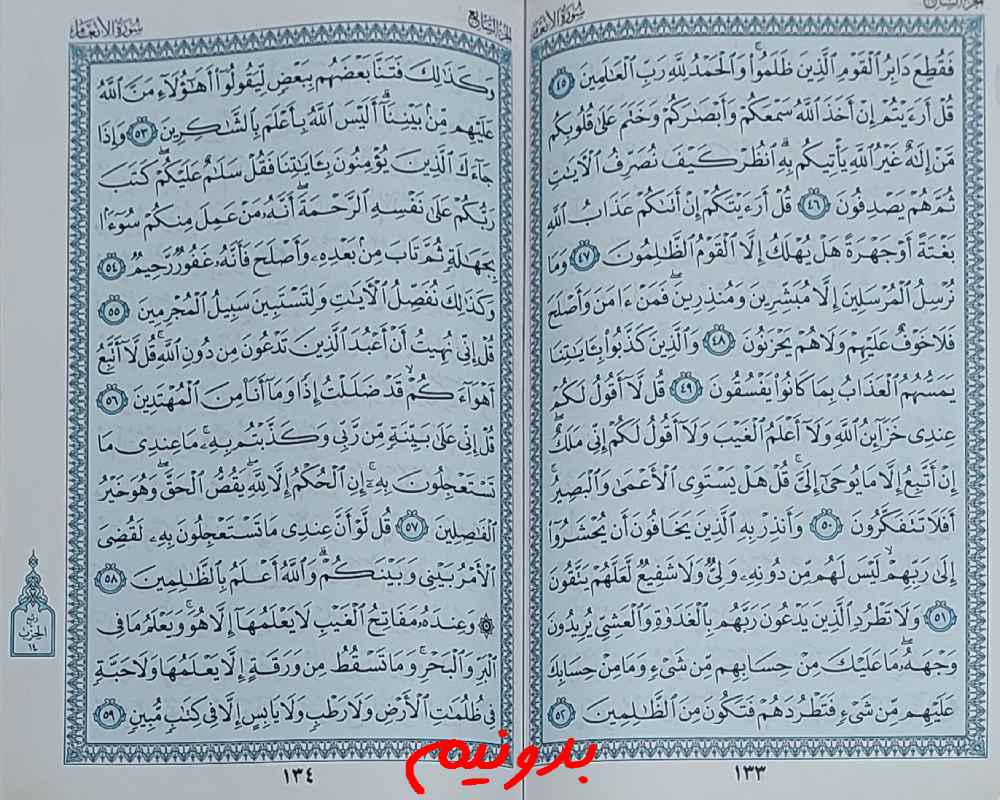 الجزء السابع
سورة الأنعام
فَقُطِعَ دَابِرُ ٱلْقَوْمِ ٱلَّذِينَ ظَلَمُوا۟ ۚ وَٱلْحَمْدُ لِلَّهِ رَبِّ ٱلْعَٰلَمِينَ ٤٥
قُلْ أَرَءَيْتُمْ إِنْ أَخَذَ ٱللَّهُ سَمْعَكُمْ وَأَبْصَٰرَكُمْ وَخَتَمَ عَلَىٰ قُلُوبِكُم
مَّنْ إِلَٰهٌ غَيْرُ ٱللَّهِ يَأْتِيكُم بِهِ ۗ ٱنظُرْ كَيْفَ نُصَرِّفُ ٱلْءَايَٰتِ
ثُمَّ هُمْ يَصْدِفُونَ ٤٦ قُلْ أَرَءَيْتَكُمْ إِنْ أَتَىٰكُمْ عَذَابُ ٱللَّهِ
بَغْتَةً أَوْ جَهْرَةً هَلْ يُهْلَكُ إِلَّا ٱلْقَوْمُ ٱلظَّٰلِمُونَ ٤٧ وَمَا
نُرْسِلُ ٱلْمُرْسَلِينَ إِلَّا مُبَشِّرِينَ وَمُنذِرِينَ ۖ فَمَنْ ءَامَنَ وَأَصْلَحَ
فَلَا خَوْفٌ عَلَيْهِمْ وَلَا هُمْ يَحْزَنُونَ ٤٨ وَٱلَّذِينَ كَذَّبُوا۟ بِـَٔايَٰتِنَا
يَمَسُّهُمُ ٱلْعَذَابُ بِمَا كَانُوا۟ يَفْسُقُونَ ٤٩ قُل لَّآ أَقُولُ لَكُمْ
عِندِى خَزَآئِنُ ٱللَّهِ وَلَآ أَعْلَمُ ٱلْغَيْبَ وَلَآ أَقُولُ لَكُمْ إِنِّى مَلَكٌ ۖ
إِنْ أَتَّبِعُ إِلَّا مَا يُوحَىٰٓ إِلَىَّ ۚ قُلْ هَلْ يَسْتَوِى ٱلْأَعْمَىٰ وَٱلْبَصِيرُ ۚ
أَفَلَا تَتَفَكَّرُونَ ٥٠ وَأَنذِرْ بِهِ ٱلَّذِينَ يَخَافُونَ أَن يُحْشَرُوٓا۟
إِلَىٰ رَبِّهِمْ ۙ لَيْسَ لَهُم مِّن دُونِهِۦ وَلِىٌّ وَلَا شَفِيعٌ لَّعَلَّهُمْ يَتَّقُونَ
٥١ وَلَا تَطْرُدِ ٱلَّذِينَ يَدْعُونَ رَبَّهُم بِٱلْغَدَوٰةِ وَٱلْعَشِىِّ يُرِيدُونَ
وَجْهَهُۥ ۖ مَا عَلَيْكَ مِنْ حِسَابِهِم مِّن شَىْءٍ وَمَا مِنْ حِسَابِكَ
عَلَيْهِم مِّن شَىْءٍ فَتَطْرُدَهُمْ فَتَكُونَ مِنَ ٱلظَّٰلِمِينَ ٥٢
١٣٣
الجزء السابع
سورة الأنعام
وَكَذَٰلِكَ فَتَنَّا بَعْضَهُم بِبَعْضٍ لِّيَقُولُوٓا۟ أَهَٰٓؤُلَآءِ مَنَّ ٱللَّهُ
عَلَيْهِم مِّنۢ بَيْنِنَآ ۗ أَلَيْسَ ٱللَّهُ بِأَعْلَمَ بِٱلشَّٰكِرِينَ ٥٣ وَإِذَا
جَآءَكَ ٱلَّذِينَ يُؤْمِنُونَ بِـَٔايَٰتِنَا فَقُلْ سَلَٰمٌ عَلَيْكُمْ ۖ كَتَبَ
رَبُّكُمْ عَلَىٰ نَفْسِهِ ٱلرَّحْمَةَ ۖ أَنَّهُۥ مَنْ عَمِلَ مِنكُمْ سُوٓءًۢا
بِجَهَٰلَةٍ ثُمَّ تَابَ مِنۢ بَعْدِهِۦ وَأَصْلَحَ فَأَنَّهُۥ غَفُورٌ رَّحِيمٌ ٥٤
وَكَذَٰلِكَ نُفَصِّلُ ٱلْءَايَٰتِ وَلِتَسْتَبِينَ سَبِيلُ ٱلْمُجْرِمِينَ ٥٥
قُلْ إِنِّى نُهِيتُ أَنْ أَعْبُدَ ٱلَّذِينَ تَدْعُونَ مِن دُونِ ٱللَّهِ ۚ قُل لَّآ أَتَّبِعُ
أَهْوَآءَكُمْ ۙ قَدْ ضَلَلْتُ إِذًا وَمَآ أَنَا۠ مِنَ ٱلْمُهْتَدِينَ ٥٦
قُلْ إِنِّى عَلَىٰ بَيِّنَةٍ مِّن رَّبِّى وَكَذَّبْتُم بِهِۦ ۚ مَا عِندِى مَا
تَسْتَعْجِلُونَ بِهِۦٓ ۚ إِنِ ٱلْحُكْمُ إِلَّا لِلَّهِ ۖ يَقُصُّ ٱلْحَقَّ ۖ وَهُوَ خَيْرُ
ٱلْفَٰصِلِينَ ٥٧ قُل لَّوْ أَنَّ عِندِى مَا تَسْتَعْجِلُونَ بِهِۦ لَقُضِىَ
ٱلْأَمْرُ بَيْنِى وَبَيْنَكُمْ ۗ وَٱللَّهُ أَعْلَمُ بِٱلظَّٰلِمِينَ ٥٨
۞ وَعِندَهُۥ مَفَاتِحُ ٱلْغَيْبِ لَا يَعْلَمُهَآ إِلَّا هُوَ ۚ وَيَعْلَمُ مَا فِى
ٱلْبَرِّ وَٱلْبَحْرِ ۚ وَمَا تَسْقُطُ مِن وَرَقَةٍ إِلَّا يَعْلَمُهَا وَلَا حَبَّةٍ
فِى ظُلُمَٰتِ ٱلْأَرْضِ وَلَا رَطْبٍ وَلَا يَابِسٍ إِلَّا فِى كِتَٰبٍ مُّبِينٍ ٥٩
ربع
الحزب
١٤
١٣٤
بدونیم